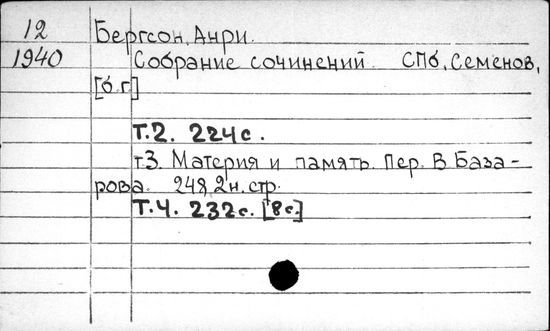 12 Бергсон, Анри.
1940 Собрание сочинений. СПб, Семенов,
[б.г.]
Т.2. 224 с.
т.3. Материя и память. Пер. В. База-
рова. 248, 2 н. стр.
Т.4. 232 с. [8 с.]